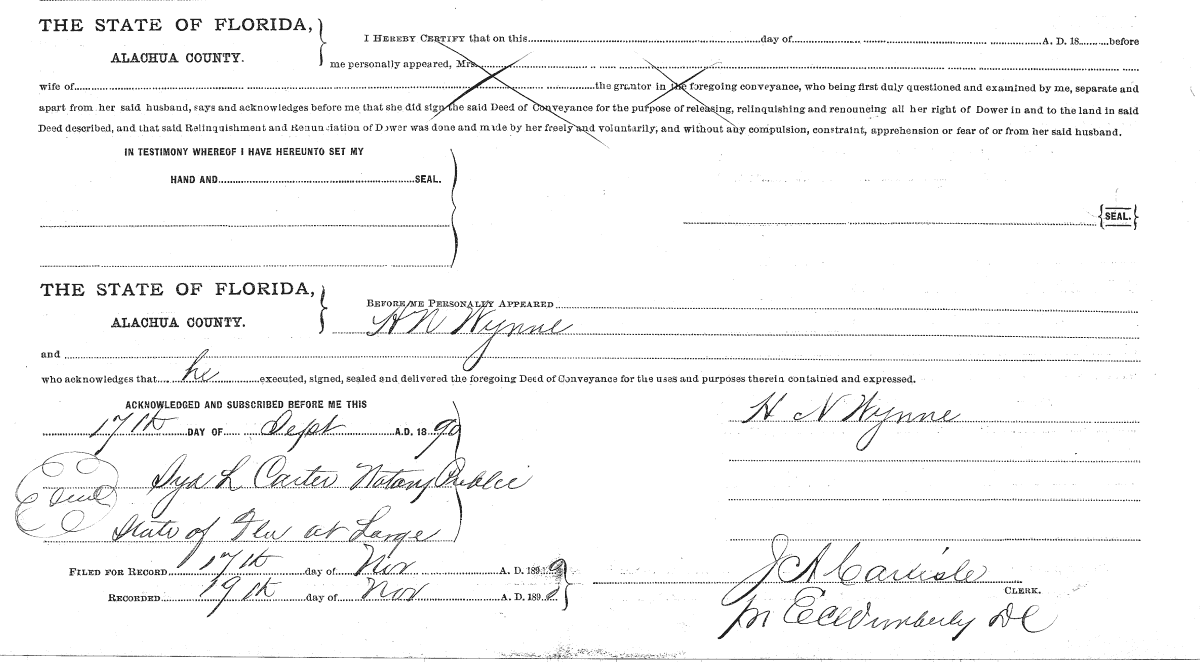 THE STATE OF FLORIDA,
ALACHUA COUNTY.
I HEREBY CERTIFY that on this day of A. D. 18 before
me personally appeared, Mrs
wife of the grantor in the foregoing conveyance, who being first duly questioned and examined by me, separate and
apart from her said husband, says and acknowledges before me that she did sign the said Deed of Conveyance for the purpose of releasing, relinquishing and renouncing all her right of Dower in and to the land in said
Deed described, and that said Relinquishment and Renunciation of Dower was done and made by her freely and voluntarily, and without any compulsion, constraint, apprehension or fear of or from her said husband.
IN TESTIMONY WHEREOF I HAVE HEREUNTO SET MY
HAND AND SEAL.
SEAL.
THE STATE OF FLORIDA,
ALACHUA COUNTY.
BEFORE ME PERSONALLY APPEARED
H N Wynne
and
who acknowledges that he executed, signed, sealed and delivered the foregoing Deed of Conveyance for the uses and purposes therein contained and expressed.
ACKNOWLEDGED AND SUBSCRIBED BEFORE ME THIS
17th DAY OF Sept A.D. 18 90
H N Wynne
L Carter Notary Public
Seal
State of Fla at Large
FILED FOR RECORD 17th day of Nov A. D. 189
RECORDED 19th day of Nov A. D. 189
J A Carlisle
CLERK.
E C Wimberly DC